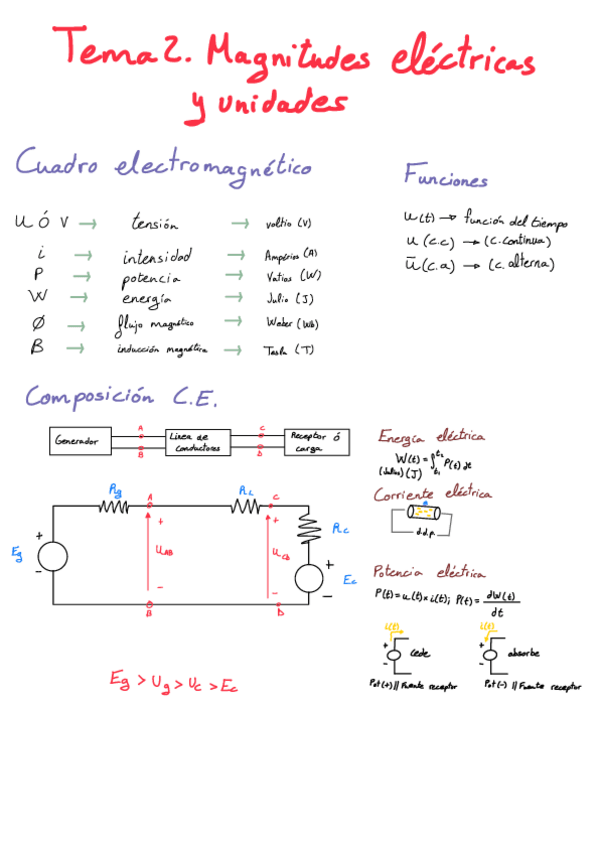 Tema 2. Magnitudes eléctricas
y unidades
Cuadro electromagnético
u ó v → tensión → voltio (V)
i → intensidad → Ampérios (A)
P → potencia → Vatios (W)
W → energía → Julio (J)
Ø → flujo magnético → Weber (Wb)
B → inducción magnética → Tesla (T)
Funciones
u(t) → función del tiempo
u (c.c) → (c. continua)
ū (c.a) → (c. alterna)
Composición C.E.
Generador
A
B
Linea de
conductores
C
D
Receptor ó
carga
Rg
A
RL
C
Rc
+
Eg
-
+
UAB
-
+
UCD
-
+
Ec
-
B
D
Eg > Ug > Uc > Ec
Energía eléctrica
W(t) = ∫t1t2 P(t) dt
(Julios) (J)
Corriente eléctrica
d.d.p.
Potencia eléctrica
P(t) = u(t) × i(t); P(t) = dW(t)/dt
i(t)
+
-
cede
Pot (+) // Fuente receptor
i(t)
+
-
absorbe
Pot (-) // Fuente receptor